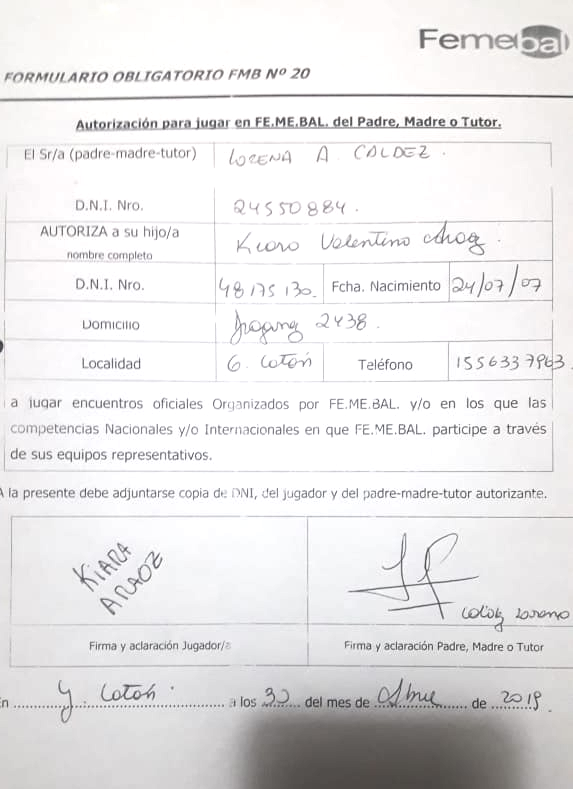 Femebal
FORMULARIO OBLIGATORIO FMB Nº 20
Autorización para jugar en FE.ME.BAL. del Padre, Madre o Tutor.
El Sr/a (padre-madre-tutor) LORENA A. CALDEZ.
D.N.I. Nro. 24550884.
AUTORIZA a su hijo/a
nombre completo
Valentino
D.N.I. Nro. 48175130. Fcha. Nacimiento 24/07/07
Domicilio 2438.
Localidad G. Teléfono 1556337963.
a jugar encuentros oficiales Organizados por FE.ME.BAL. y/o en los que las
competencias Nacionales y/o Internacionales en que FE.ME.BAL. participe a través
de sus equipos representativos.
A la presente debe adjuntarse copia de DNI, del jugador y del padre-madre-tutor autorizante.
KIARA
ARAOZ
Lorena
Firma y aclaración Jugador/a Firma y aclaración Padre, Madre o Tutor
En a los 30 del mes de de 2019.